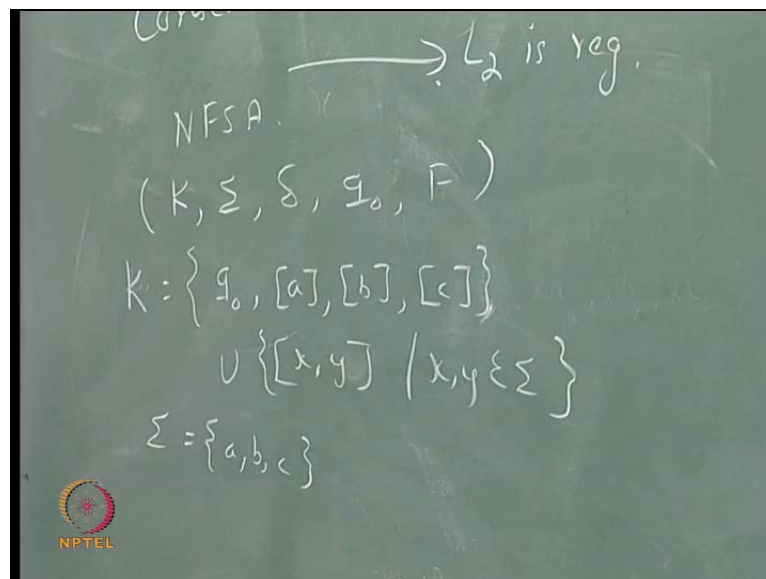 L₂ is reg.
NFSA.
(K, Σ, δ, q₀, F)
K = {q₀, [a], [b], [c]}
∪ {[x,y] / x,y ∈ Σ}
Σ = {a, b, c}
NPTEL